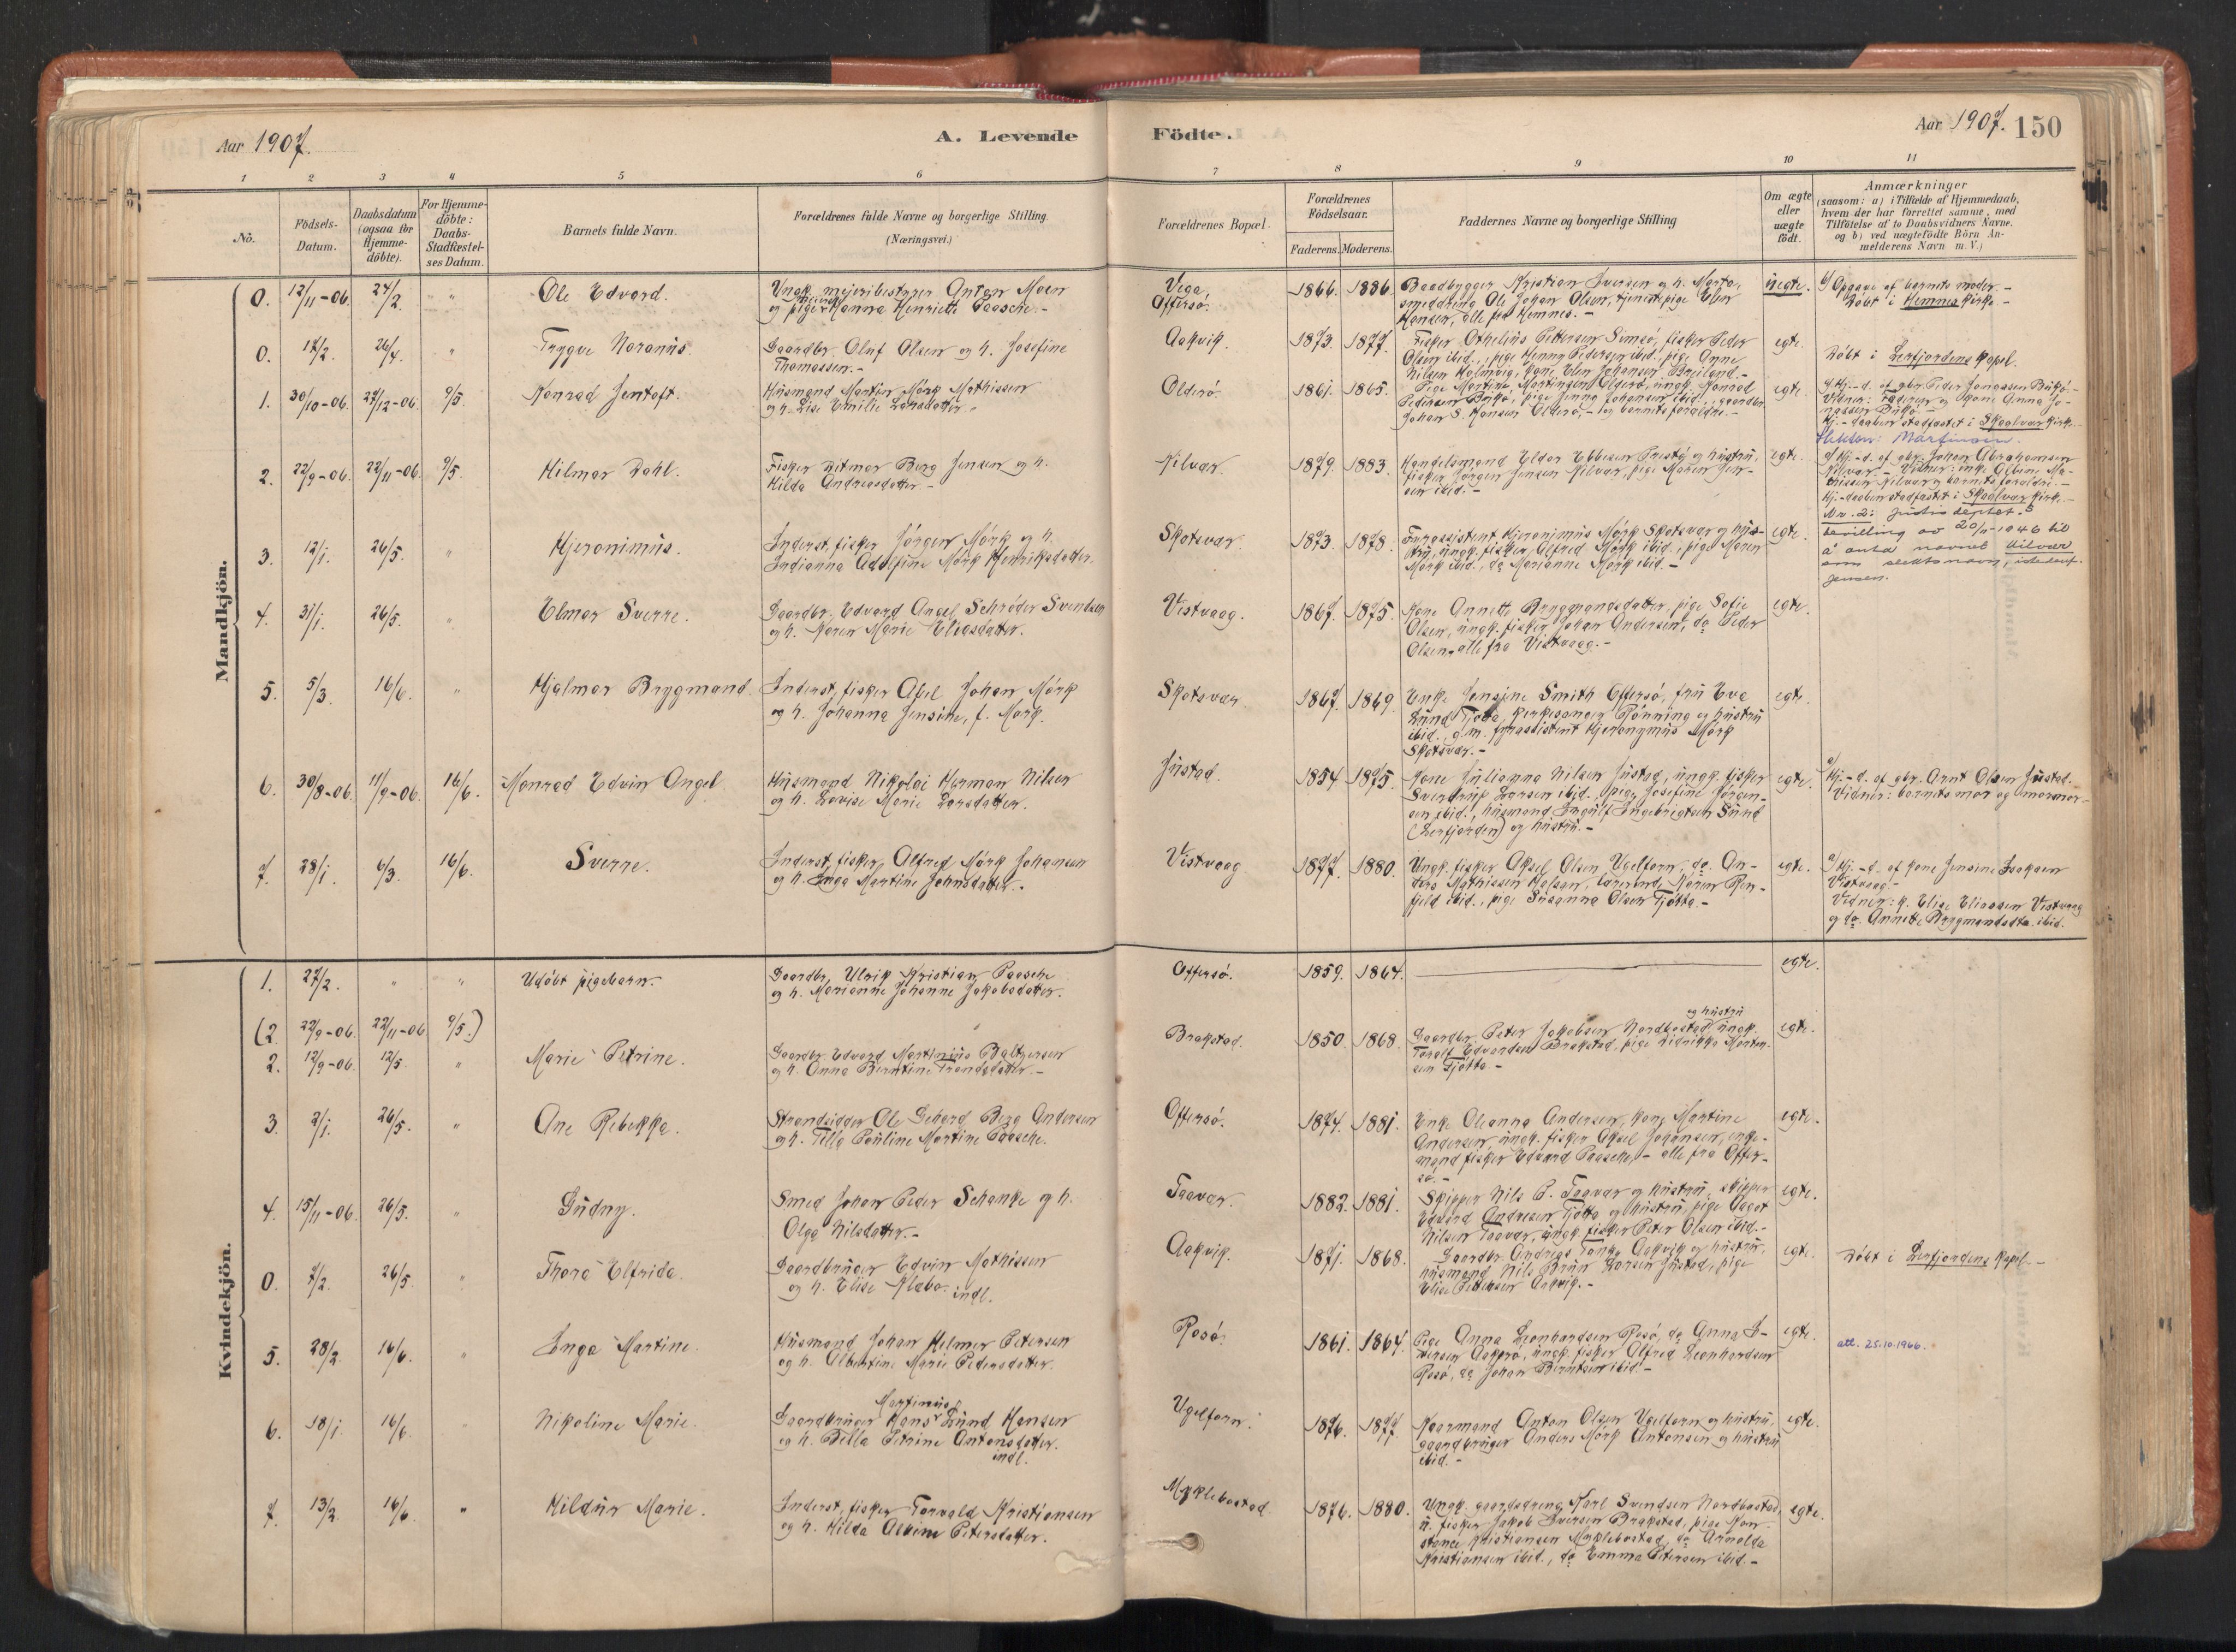 Aar 1907.
A. Levende
Födte.
Aar 1907. 150
1 2 3 4 5 6 7 8 9 10 11
No.
Födsels-
Datum.
Daabsdatum
(ogsaa for
Hjemme-
döbte).
For Hjemme-
döbte:
Daabs-
Stadfæstel-
ses Datum.
Barnets fulde Navn.
Forældrenes fulde Navne og borgerlige Stilling.
(Næringsvei.)
Forældrenes Bopæl.
Forældrenes
Födselsaar.
Faderens. Moderens.
Faddernes Navne og borgerlige Stilling
Om ægte
eller
uægte
födt.
Anmærkninger
(saasom: a) i Tilfælde af Hjemmedaab,
hvem der har forrettet samme, med
Tilföielse af to Daabsvidners Navne.
og b) ved uægtefödte Börn An-
melderens Navn m. V.)
Mandkjön.
0. 12/11-06. 24/2. " " Ole Edvard.
Ungk. meieribestyrer Anton Moen
og pige Hanna Henriette Paasche.-
Vega.
Offersö.
1866. 1886.
Baadbygger Kristian Iversen og h. Marta,
smeddreng Ole Johan Olsen, tjenestepige Elen
Hansen, alle fra Hemnes.-
uegte.
b/ Opgave af barnets moder.-
Döbt i Hemnes kirke.-
0. 17/2. 26/4. " Trygve Noranüs.
Gaardbr. Oluf Olsen og h. Josefine
Thomassen.-
Aakvik. 1873. 1877.
Fisker Othelius Pettersen Simsö, fisker Peder
Olsen ibid., pige Henny Pedersen ibid., pige Anne
Nilsen Holmvig, kone Elen Johansen Breiland.-
egte.
Döbt i Leirfjordens kapel.
1. 30/10-06. 27/12-06. 9/5. Konrad Jentoft.
Husmand Martin Mörk Mathissen
og h. Lise Emilie Larsdatter.
Olderö. 1861. 1865.
Pige Martine Martinsen Olderö, ungk. Konrad
Pedersen Bukö, pige Jenny Johansen ibid., gaardbr.
Johan S. Hansen Olderö,- og barnets foraldre.-
egte.
a/ Hj.-d. af gbr. Peder Jonassen Bukö.-
Vidner: Faderen og kone Anna Jo-
nassen Bukö.-
Hj.-daaben stadfæstet i Skaalvær kirke.
Slektsn: Martinsen.
2. 22/9-06. 22/11-06. 9/5. Hilmar Dahl.
Fisker Ditmar Berg Jensen og h.
Hilda Andreasdatter.-
Kilvær. 1879. 1883.
Handelsmand Eldor Ebbesen Prestö og hustru,
fisker Jörgen Jensen Kilvær, pige Maren Jen-
sen ibid.-
egte.
a/ Hj.-d. af gbr. Johan Abrahamsen
Kilvær.- Vidner: enke Olbine Ma-
thissen Kilvær og barnets foraldre.-
Hj.-daaben stadfæstet i Skaalvær kirke.-
Nr. 2: Justis deptet.s
bevilling av 20/11-1946 til
å anta navnet Kilvær
som slektsnavn, istedenf.
Jensen.
3. 12/1. 26/5. " Hjeronimüs.
Inderst, fisker Jörgen Mörk og h.
Indianna Adolfine Mörk Henriksdatter.
Skotsvær. 1873. 1878.
Fyrassistent Hjeronimüs Mörk Skotsvær og hüs-
tru, ungk. fisker Alfred Mörk ibid., pige Maren
Mörk ibid., do Marianne Mörk ibid.-
egte.
4. 31/1. 26/5. " Elmar Sverre.
Gaardbr. Edvard Angel Schröder Svendsen
og h. Karen Marie Eliasdatter.
Vistvaag. 1867. 1875.
Kone Annette Brygmandsdatter, pige Sofie
Olsen, ungk. fisker Johan Andersen, do Peder
Olsen, alle fra Vistvaag.-
egte.
5. 5/3. 16/6. " Hjalmar Brygmand.
Inderst, fisker Abel Johan Mörk
og h. Johanna Jensine, f. Mörk.
Skotsvær. 1867. 1869.
Enke Jensine Smith Offersö, fru Eva
Lund Tjötta, kirkesanger Rönning og hustru
ibid., g.m. fyrassistent Hjeronymüs Mörk
Skotsvær.-
egte.
6. 30/8-06. 11/9-06. 16/6. Monrad Edvin Angel.
Husmand Nikolai Herman Nilsen
og h. Lovise Marie Larsdatter.
Jüstad. 1854. 1875.
Kone Julianna Nilsen Jüstad, ungk. fisker
Sverdrup Larsen ibid., pige Josefine Jörgen-
sen ibid., husmand Ingulf Ingebrigtsen Sund
(Leirfjorden) og hustru.-
egte.
a/ Hj.-d. af gbr. Arnt Olsen Jüstad.
Vidner: barnets mor og mormor.-
7. 28/1. 6/3. 16/6. Sverre.
Inderst, fisker Alfred Mörk Johansen
og h. Inga Martine Johnsdatter.-
Vistvaag. 1877. 1880.
Ungk. fisker Aksel Olsen Ugelforn, do An-
ders Mathissen Halsen, lærerinde Maren Ren-
fjeld ibid., pige Susanna Olsen Tjötta.-
egte.
a/ Hj.-d. af kone Jensine Isaksen
Vistvaag.-
Vidner: k. Elise Eliassen Vistvaag
og do Annette Brygmandsdtr. ibid.
Kvindekjön.
1. 27/2. " " Udöbt pigebarn.
Gaardbr. Ulrik Kristian Paasche
og h. Marianne Johanne Jakobsdatter.
Offersö. 1859. 1864. egte.
(2. 22/9-06. 22/11-06 9/5.)
2. 12/9-06. 12/5. " Marie Petrine.
Gaardbr. Edvard Martinius Baltzersen
og h. Anna Berntine Trondsdatter.-
Brakstad. 1850. 1868.
og hustru
Gaardbr. Peter Jakobsen Nordbostad, ungk.
Toralf Edvardsen Brakstad, pige Didrikke Morten-
sen Tjötta.-
egte.
3. 2/1. 26/5. " Ane Rebekka.
Strandsidder Ole Gehard Berg Andersen
og h. Tella Pauline Martine Paasche.
Offersö. 1874. 1881.
Enke Oleanna Andersen, kone Martine
Andersen, ungk. fisker Aksel Johansen, enke-
mand fisker Edvard Paasche,- alle fra Offer-
sö.-
egte.
4. 15/11-06. 26/5. " Gudny.
Smed Johan Peder Schanke og h.
Olga Nilsdatter.-
Taavær. 1882. 1881.
Skipper Nils P. Taavær og hustru, skipper
Edvard Andresen Tjötta og hustru, pige Dagot
Nilsen Taavær, ungk. fisker Peter Olsen ibid.-
egte.
0. 7/2. 26/5. " Thora Elfrida.
Gaardbruger Edvin Mathissen
og h. Elise Klæbo. indl.
Aakvik. 1871. 1868.
Gaardbr. Andreas Tanke Aakvik og hustru,
husmand Nils Brun Larsen Jüstad, pige
Elise Pettersen Aakvig.-
egte.
Döbt i Leirfjordens kapel.-
5. 28/2. 16/6. " Inga Martine.
Husmand Johan Helmer Petersen
og h. Albertine Marie Pedersdatter.
Rosö. 1861. 1864.
Pige Anna Leonhardsen Rosö, do Anna I-
versen Aakerö, ungk. fisker Alfred Leonhardsen
Rosö, do Johan Berntsen ibid.-
egte.
att. 25.10.1966.
6. 18/1. 16/6. " Nikoline Marie.
Martinius
Gaardbruger Hans Lund Hansen
og h. Bella Petrine Antonsdatter.
indl.
Ugelforn. 1876. 1877.
Kaarmand Anton Olsen Ugelforn og hustru,
gaardbruger Anders Mörk Antonsen og hustru
ibid.-
egte.
7. 13/2. 16/6. " Hildur Marie.
Inderst, fisker Torvald Kristiansen
og h. Hilda Alvine Petersdatter.
Myklebostad. 1876. 1880.
Ungk. gaardsdreng Karl Svendsen Nordbostad,
u. fisker Jakob Iversen Brakstad, pige Kon-
stance Kristiansen Myklebostad, do Arnolda
Kristiansen ibid., do Emma Petersen ibid.-
egte.